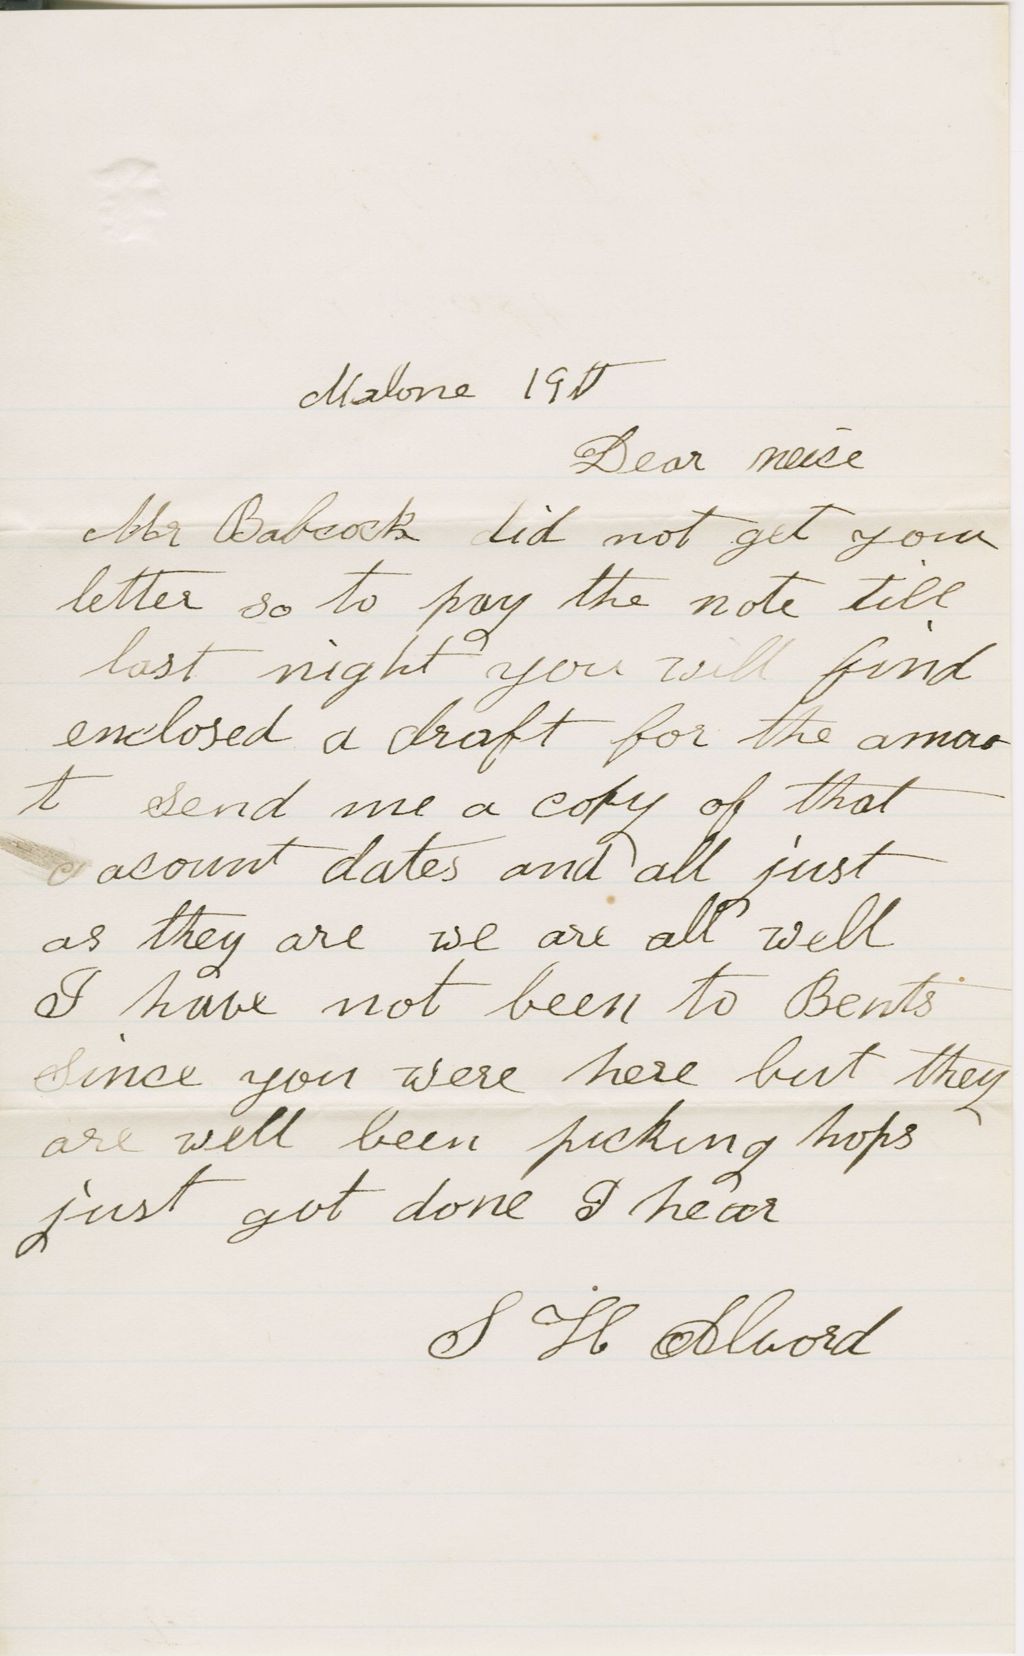 Malone 19th
Dear neice
Mr Babcock did not get your
letter so to pay the note till
last night you will find
enclosed a draft for the amao
t send me a copy of that
acount dates and all just
as they are we are all well
I have not been to Bents
since you were here but they
are well been picking hops
just got done I hear
S H Alvord